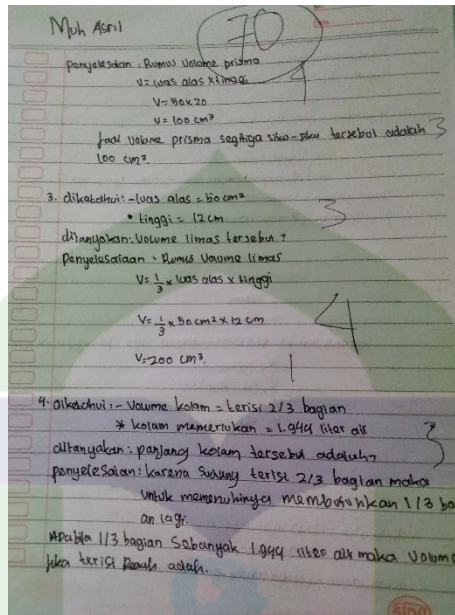 Muh Asril
70
Penyelesaian : Rumus Volume prisma
V = luas alas x tinggi
4
V = 50 x 20
V = 100 cm³
Jadi volume prisma segitiga siku-siku tersebut adalah 3
100 cm³.
3. diketahui : - luas alas = 50 cm²
• tinggi = 12 cm
3
ditanyakan : Volume limas tersebut ?
Penyelesaiaan : Rumus Volume limas
V = 1/3 x luas alas x tinggi
V = 1/3 x 50 cm² x 12 cm
4
V = 200 cm³.
1
4. diketahui : - Volume kolam = terisi 2/3 bagian
* kolam memerlukan = 1.944 liter air
3
ditanyakan : panjang kolam tersebut adalah ?
penyelesaian : karena sudung terisi 2/3 bagian maka
untuk memenuhinya membutuhkan 1/3 ba
an lagi.
Apabila 1/3 bagian sebanyak 1.944 liter air maka volum
jika terisi Penuh adah.